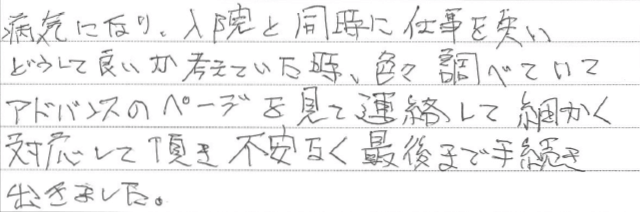 病気になり、入院と同時に仕事を失い
どうして良いか考えていた時、色々調べていて
アドバンスのページを見て連絡して細かく
対応して頂き不安なく最後まで手続き
出きました。